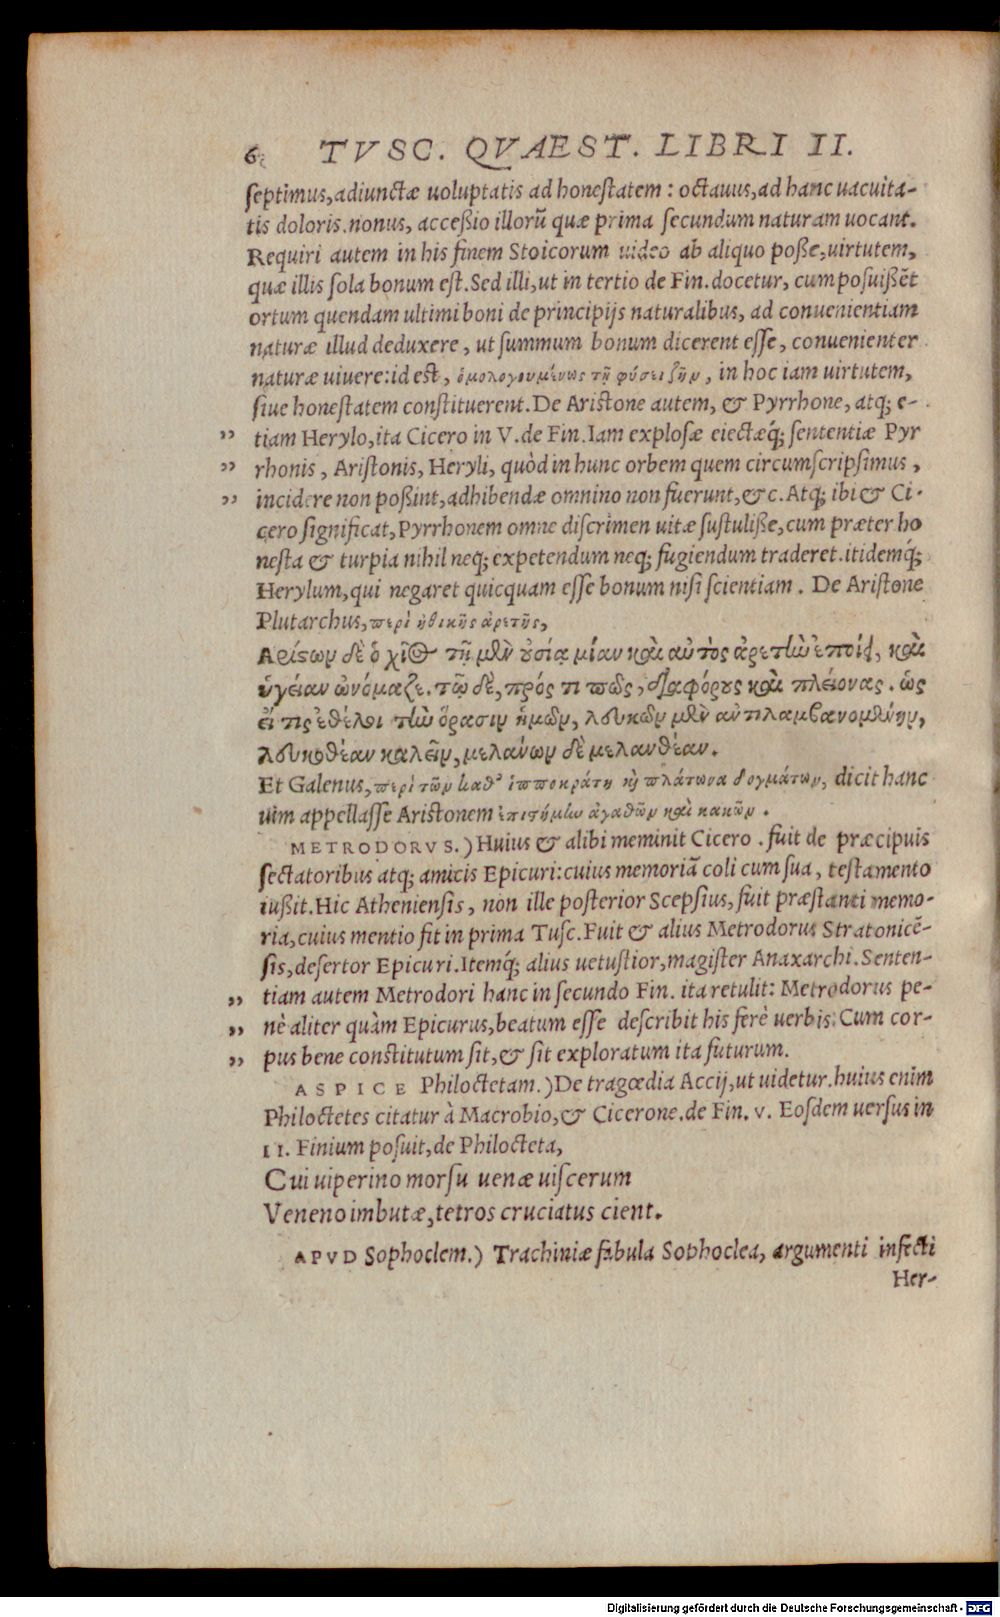 6 TVSC. QVAEST. LIBRI II.
septimus, adiunctæ uoluptatis ad honestatem: octauus, ad hanc uacuita-
tis doloris. nonus, accessio illorū quæ prima secundum naturam uocant.
Requiri autem in his finem Stoicorum uideo ab aliquo posse, uirtutem,
quæ illis sola bonum est. Sed illi, ut in tertio de Fin. docetur, cum posuissēt
ortum quendam ultimi boni de principijs naturalibus, ad conuenientiam
naturæ illud deduxere, ut summum bonum dicerent esse, conuenienter
naturæ uiuere: id est, ὁμολογουμένως τῇ φύσει ζῆν, in hoc iam uirtutem,
siue honestatem constituerent. De Aristone autem, & Pyrrhone, atq; e-
„ tiam Herylo, ita Cicero in V. de Fin. Iam explosæ eiectæq́; sententiæ Pyr
„ rhonis, Aristonis, Heryli, quòd in hunc orbem quem circumscripsimus,
„ incidere non possint, adhibendæ omnino non fuerunt, &c. Atq; ibi & Ci-
cero significat, Pyrrhonem omne discrimen uitæ sustulisse, cum præter ho
nesta & turpia nihil neq; expetendum neq; fugiendum traderet. itidemq́;
Herylum, qui negaret quicquam esse bonum nisi scientiam. De Aristone
Plutarchus, περὶ ἠθικῆς ἀρετῆς,
Αρίστων δὲ ὁ χῖος τῇ μὲν οὐσίᾳ μίαν καὶ αὐτὸς ἀρετὴν ἐποίει, καὶ
ὑγείαν ὠνόμαζε. τῷ δὲ, πρός τι πῶς, διαφόρους καὶ πλείονας. ὡς
εἴ τις ἐθέλοι τὴν ὅρασιν ἡμῶν, λευκῶν μὲν ἀντιλαμβανομένην,
λευκοθέαν καλεῖν, μελάνων δὲ μελανθέαν.
Et Galenus, περὶ τῶν καθ᾽ ἱπποκράτη κὶ πλάτωνα δογμάτων, dicit hanc
uim appellasse Aristonem ἐπιστήμην ἀγαθῶν καὶ κακῶν.
METRODORVS.) Huius & alibi meminit Cicero. fuit de præcipuis
sectatoribus atq; amicis Epicuri: cuius memoriā coli cum sua, testamento
iussit. Hic Atheniensis, non ille posterior Scepsius, fuit præstanti memo-
ria, cuius mentio fit in prima Tusc. Fuit & alius Metrodorus Stratonicē-
sis, desertor Epicuri. Itemq́; alius uetustior, magister Anaxarchi. Senten-
„ tiam autem Metrodori hanc in secundo Fin. ita retulit: Metrodorus pe-
„ nè aliter quàm Epicurus, beatum esse describit his ferè uerbis: Cum cor-
„ pus bene constitutum sit, & sit exploratum ita futurum.
ASPICE Philoctetam.) De tragœdia Accij, ut uidetur. huius enim
Philoctetes citatur à Macrobio, & Cicerone. de Fin. v. Eosdem uersus in
II. Finium posuit, de Philocteta,
Cui uiperino morsu uenæ uiscerum
Veneno imbutæ, tetros cruciatus cient.
APVD Sophoclem.) Trachiniæ fabula Sophoclea, argumenti infecti
Her-
Digitalisierung gefördert durch die Deutsche Forschungsgemeinschaft - DFG